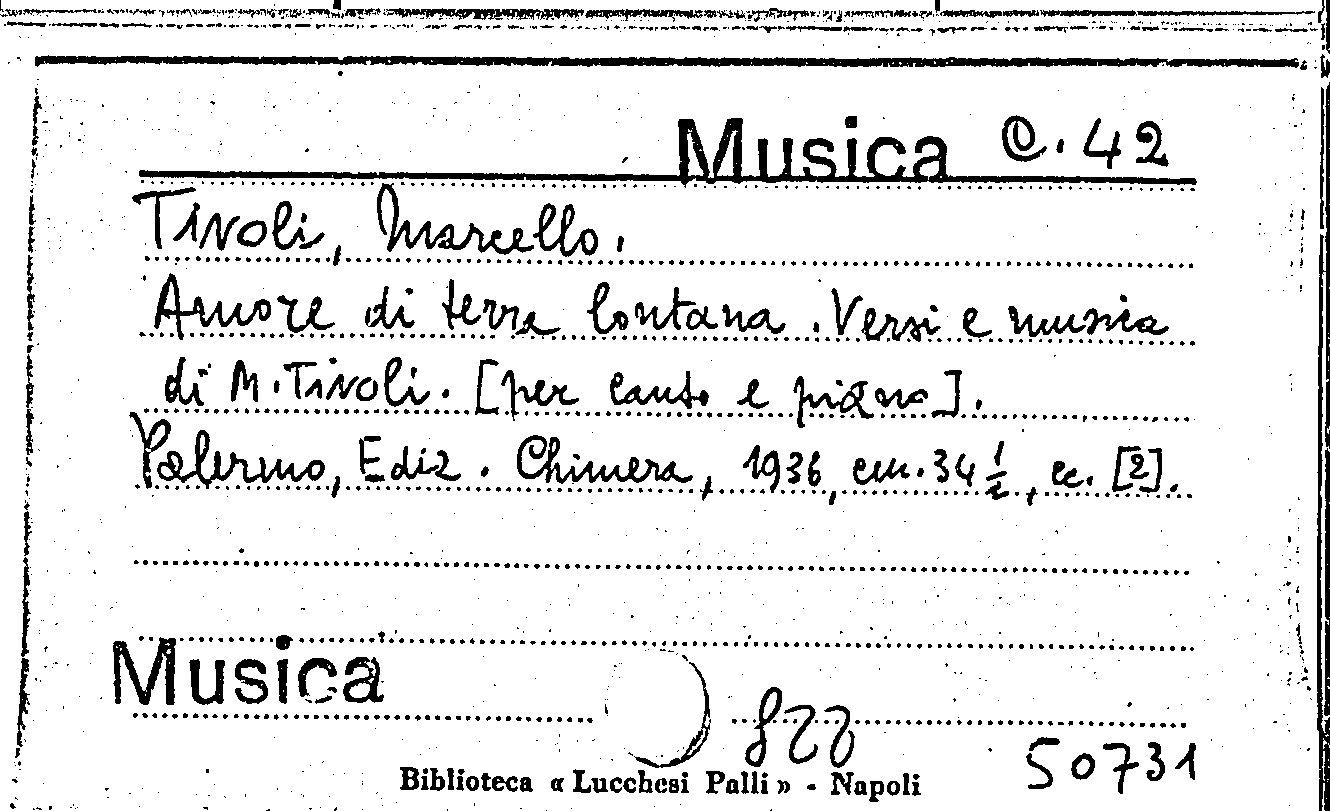 Musica C. 42
Tivoli, Marcello.
Amore di terra lontana. Versi e musica
di M. Tivoli. [per canto e piano].
Palermo, Ediz. Chimera, 1936, cm. 34 ½, cc. [2].
Musica
50731
Biblioteca « Lucchesi Palli » - Napoli